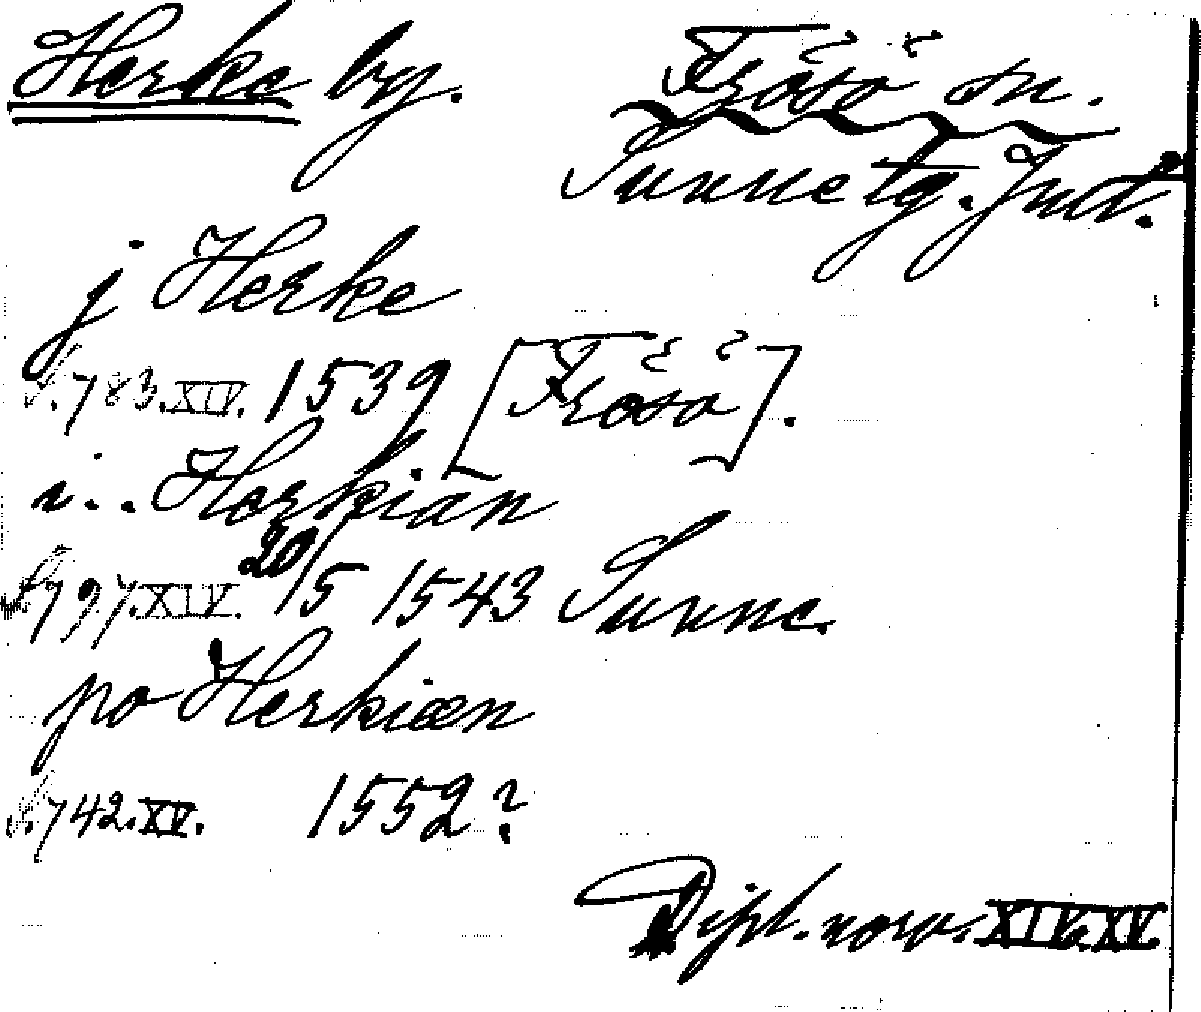 Herke by.
Frösö sn.
Sunne tg. Jmt.
j Herke
s. 783. XIV. 1539 [Frösö].
i.. Herkian
s. 797. XIV. 20/5 1543 Sunne.
po Herkiæn
s. 742. XV. 1552?
Dipl. norv. XIV. XV.